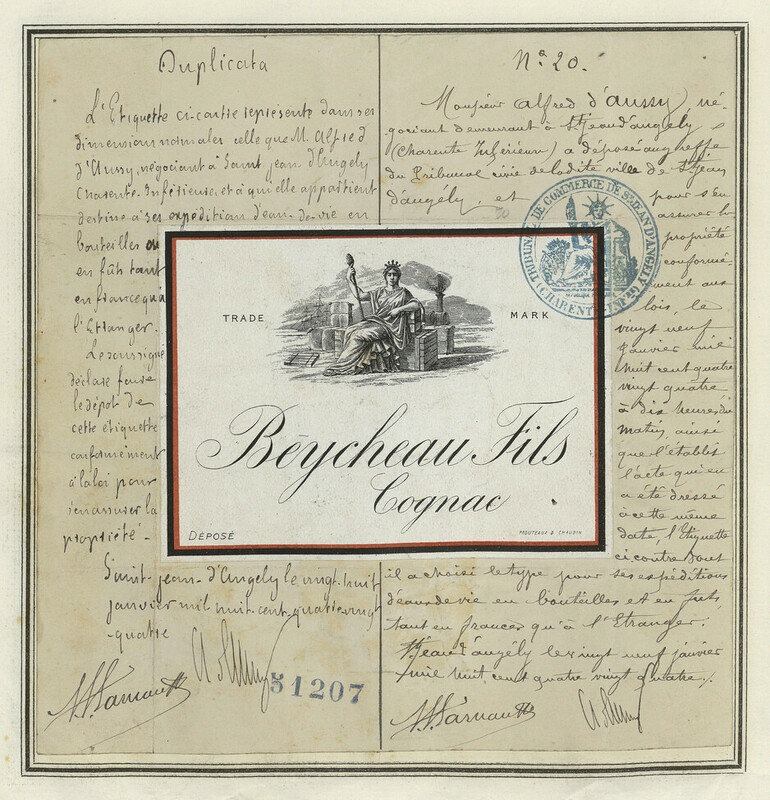 Duplicata
L'Etiquette ci-contre représente dans ses
dimensions normales celle que M. Alfred
d'Aussy, négociant à Saint jean d'Angely
Charente-Inférieure, et à qui elle appartient
destine à ses expéditions d'eau-de-vie en
bouteilles ou
en fûts tant
en france qu'à
l'Etranger.
Le soussigné
déclare faire
le dépôt de
cette étiquette
conformément
à la loi pour
s'en assurer la
propriété.
Saint-jean-d'Angely le vingt-huit
janvier mil huit-cent-quatre-vingt
-quatre
51207
N° 20.
Monsieur Alfred d'Aussy, né-
gociant demeurant à St Jean d'angely
(Charente Inférieure) a déposé au greffe
du Tribunal civil de la dite ville de St Jean
d'angély, et pour s'en
assurer la
propriété
conformé-
ment aux
lois, le
vingt neuf
janvier mil
huit cent quatre
vingt quatre
à dix heures du
matin, ainsi
que l'établit
l'acte qui en
a été dressé
à cette même
date, l'Etiquette
ci contre dont
il a choisi le type pour ses expéditions
d'eaux de vie en bouteilles et en futs
tant en france qu'à l'Etranger.
St Jean d'angély le vingt neuf janvier
mil huit cent quatre vingt quatre.
TRIBUNAL DE COMMERCE DE ST JEAN D'ANGELY
(CHARENTE-INFRE)
TRADE MARK
Béycheau Fils
Cognac
DÉPOSÉ
PROUTEAUX & CHAUVIN